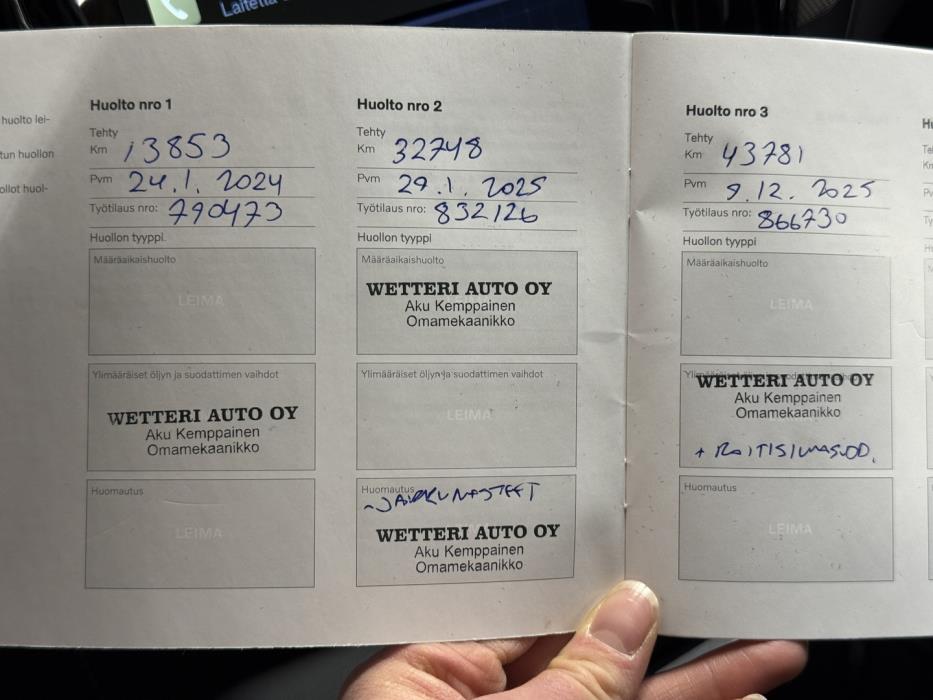 Laitetta
huolto lei-
tun huollon
ollot huol-
Huolto nro 1
Tehty
Km 13853
Pvm 24.1. 2024
Työtilaus nro: 790473
Huollon tyyppi.
Määräaikaishuolto
LEIMA
Ylimääräiset öljyn ja suodattimen vaihdot
WETTERI AUTO OY
Aku Kemppainen
Omamekaanikko
Huomautus
LEIMA
Huolto nro 2
Tehty
Km 32748
Pvm 29.1. 2025
Työtilaus nro: 832126
Huollon tyyppi
Määräaikaishuolto
WETTERI AUTO OY
Aku Kemppainen
Omamekaanikko
Ylimääräiset öljyn ja suodattimen vaihdot
LEIMA
Huomautus
~JARRUNASTEET
WETTERI AUTO OY
Aku Kemppainen
Omamekaanikko
Huolto nro 3
Tehty
Km 43781
Pvm 9.12. 2025
Työtilaus nro: 866730
Huollon tyyppi
Määräaikaishuolto
LEIMA
WETTERI AUTO OY
Aku Kemppainen
Omamekaanikko
+ RAITISILMASUOD.
Huomautus
LEIMA